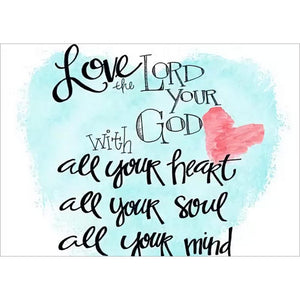 Love the LORD
YOUR
with GOD
all your heart
all your soul
all your mind